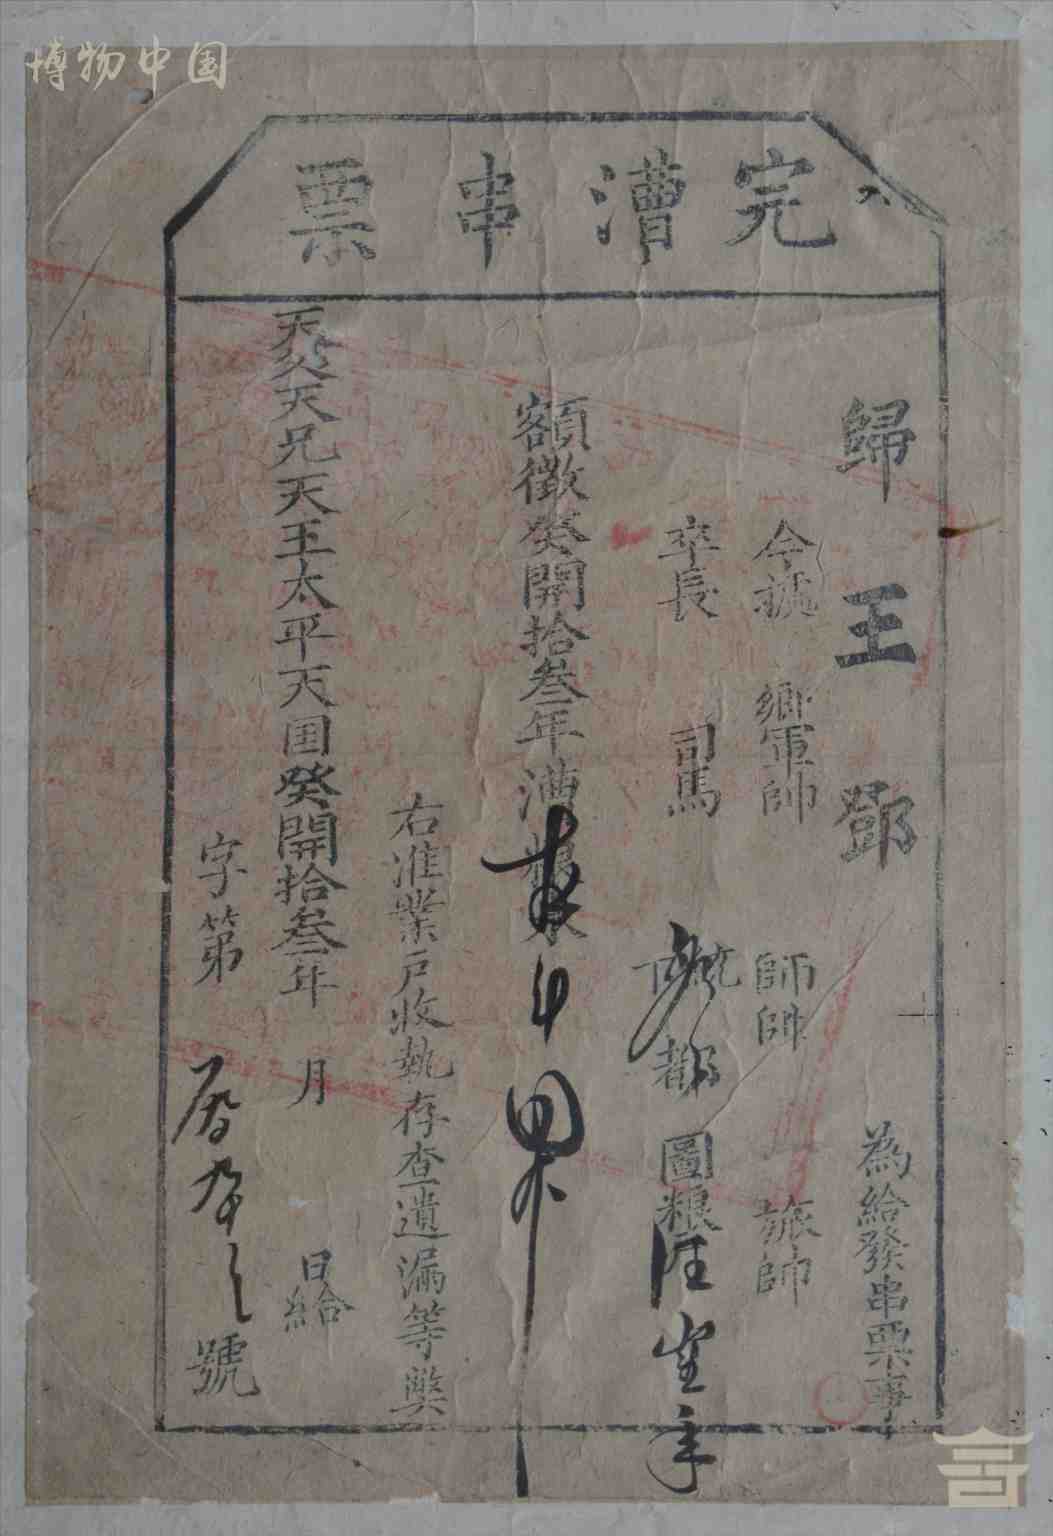 博物中国
完漕串票
歸王鄧 為給發串票事
今據 鄉軍帥 師帥 旅帥
卒長 司馬 都 圖粮
額徵癸開拾叁年漕粮米
右准業戶收執存查遺漏等弊
天父天兄天王太平天囯癸開拾叁年 月 日給
字第 號